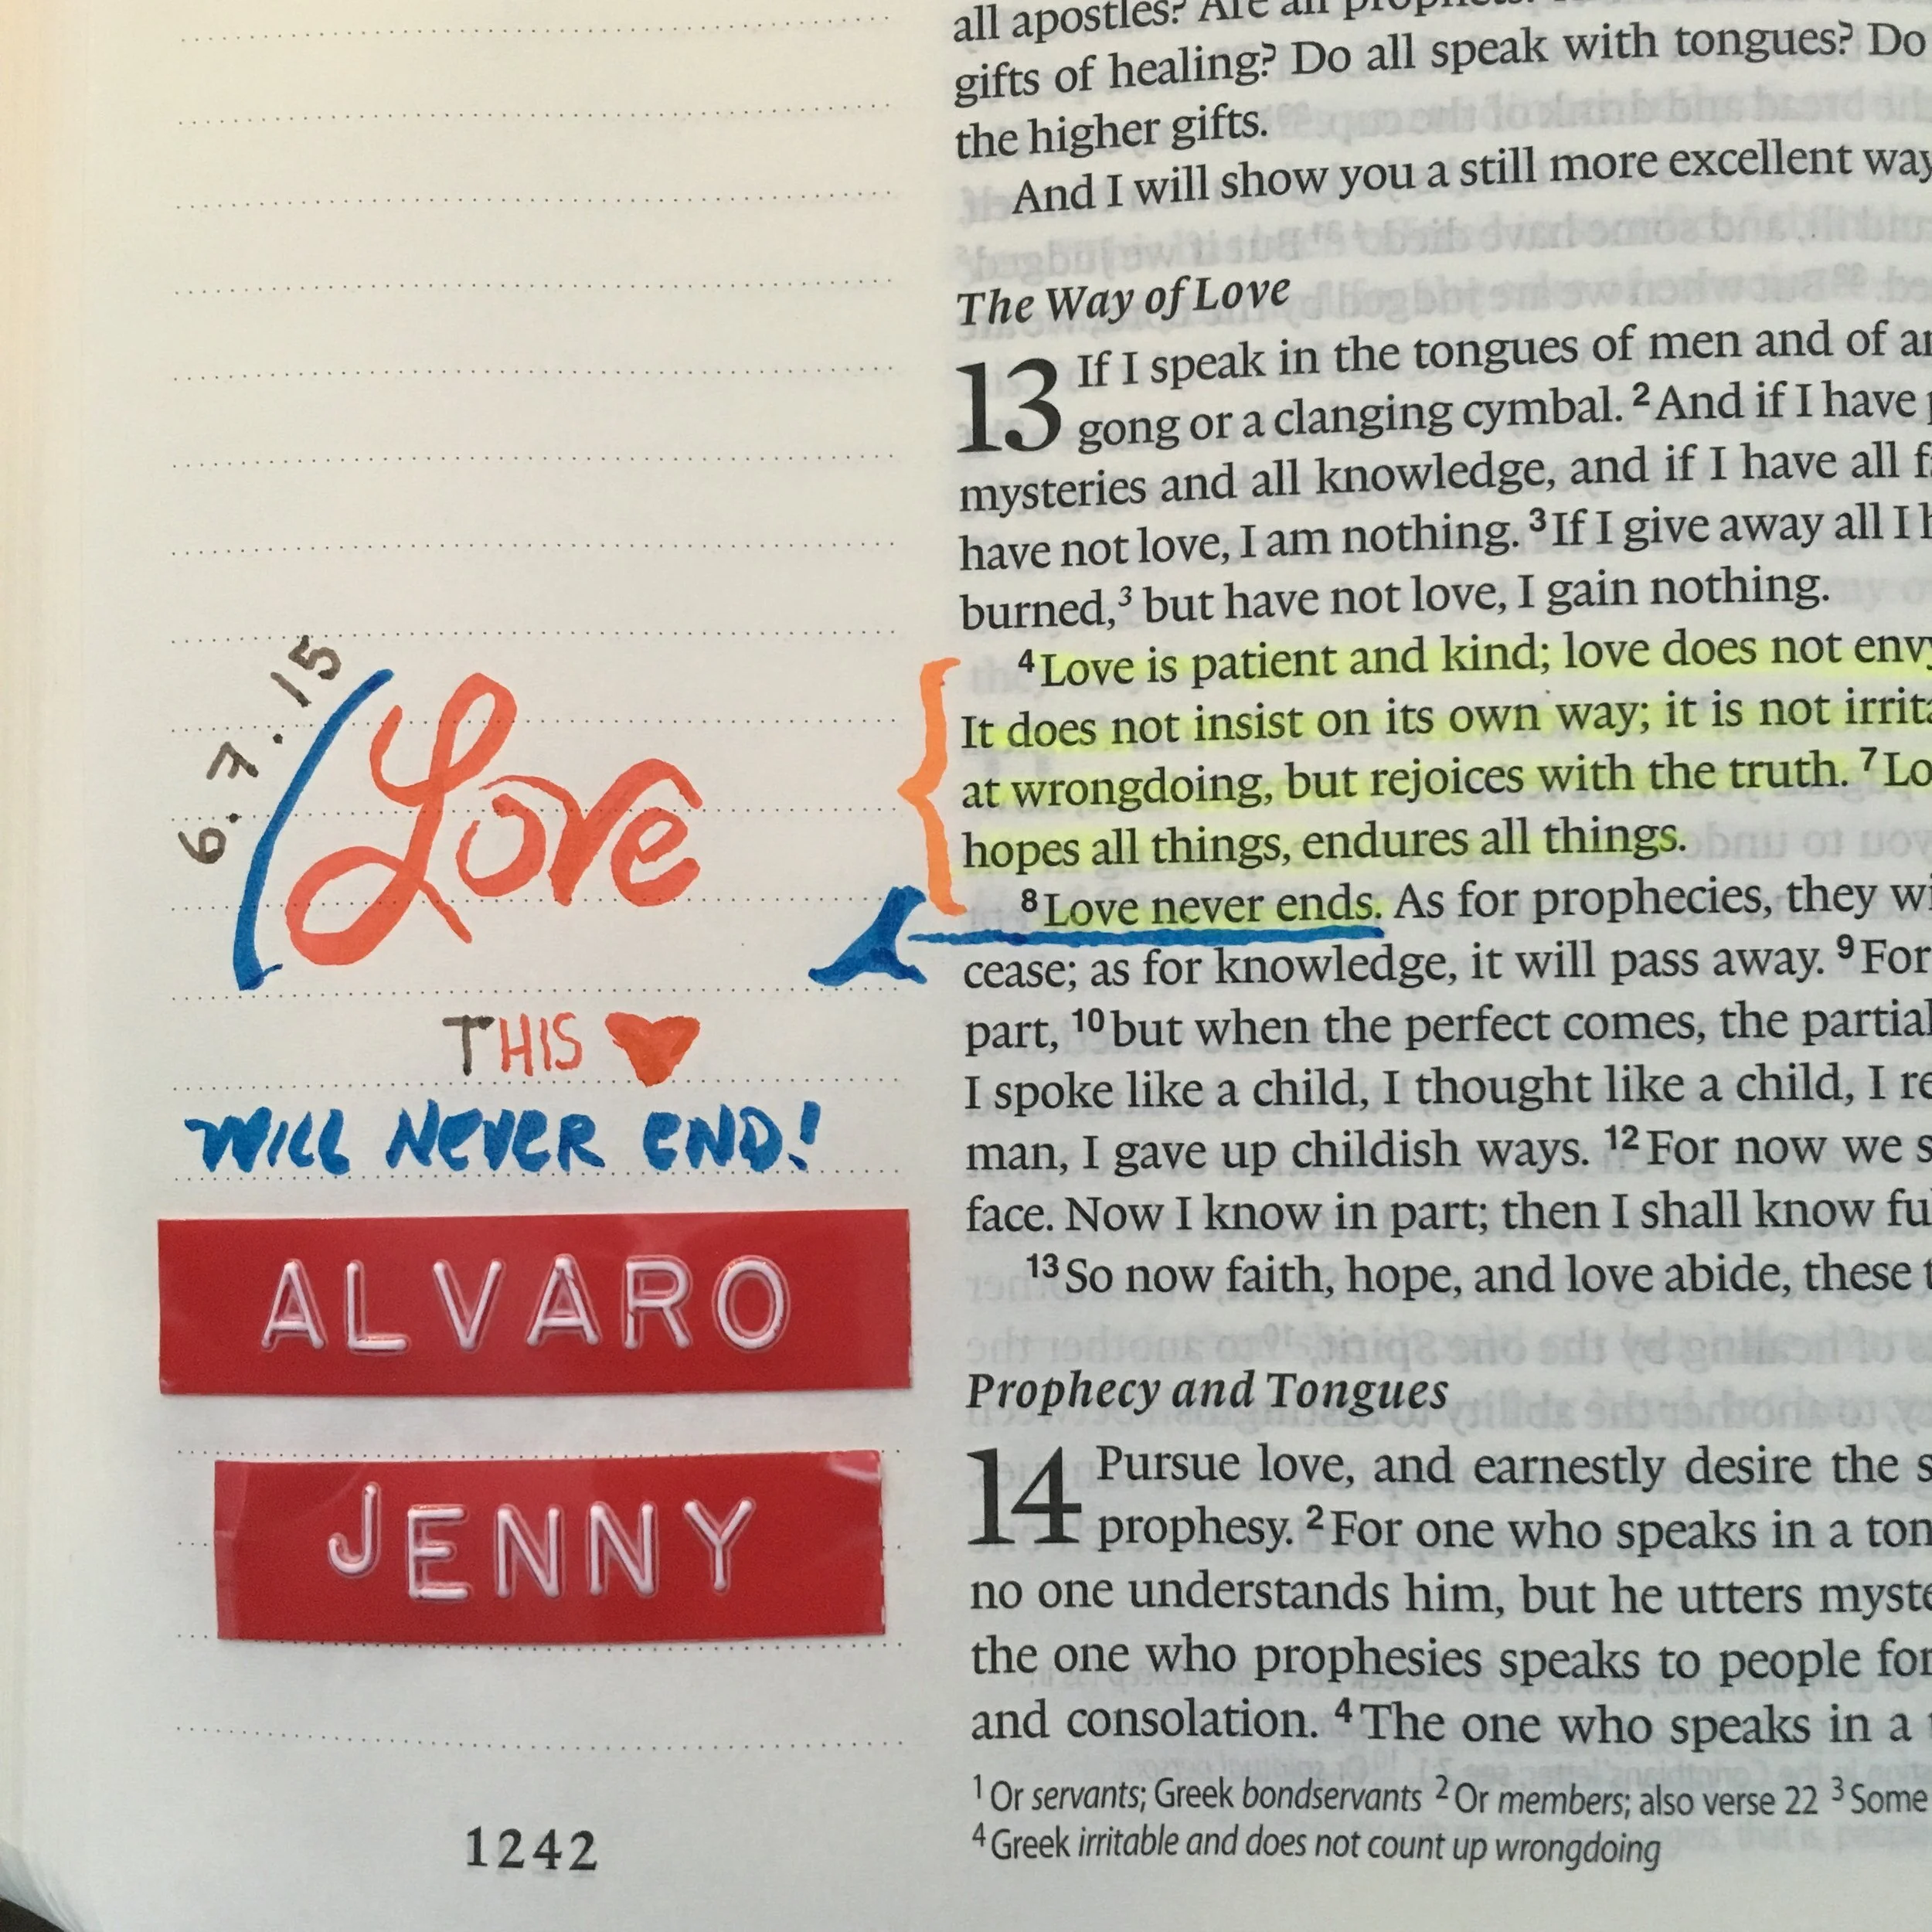 all apostles? Are all
gifts of healing? Do all speak with tongues? Do
the higher gifts.
And I will show you a still more excellent way
The Way of Love
13 If I speak in the tongues of men and of
gong or a clanging cymbal. 2 And if I have
mysteries and all knowledge, and if I have all
have not love, I am nothing. 3 If I give away all I
burned,3 but have not love, I gain nothing.
4 Love is patient and kind; love does not envy
It does not insist on its own way; it is not
at wrongdoing, but rejoices with the truth. 7
hopes all things, endures all things.
8 Love never ends. As for prophecies, they
cease; as for knowledge, it will pass away. 9 For
part, 10 but when the perfect comes, the partial
I spoke like a child, I thought like a child, I
man, I gave up childish ways. 12 For now we
face. Now I know in part; then I shall know
13 So now faith, hope, and love abide, these
Prophecy and Tongues
14 Pursue love, and earnestly desire the
prophesy. 2 For one who speaks in a
no one understands him, but he utters
the one who prophesies speaks to people for
and consolation. 4 The one who speaks in a
1 Or servants; Greek bondservants 2 Or members; also verse 22 3 Some
4 Greek irritable and does not count up wrongdoing
6.7.15
Love
THIS
WILL NEVER END!
ALVARO
JENNY
1242